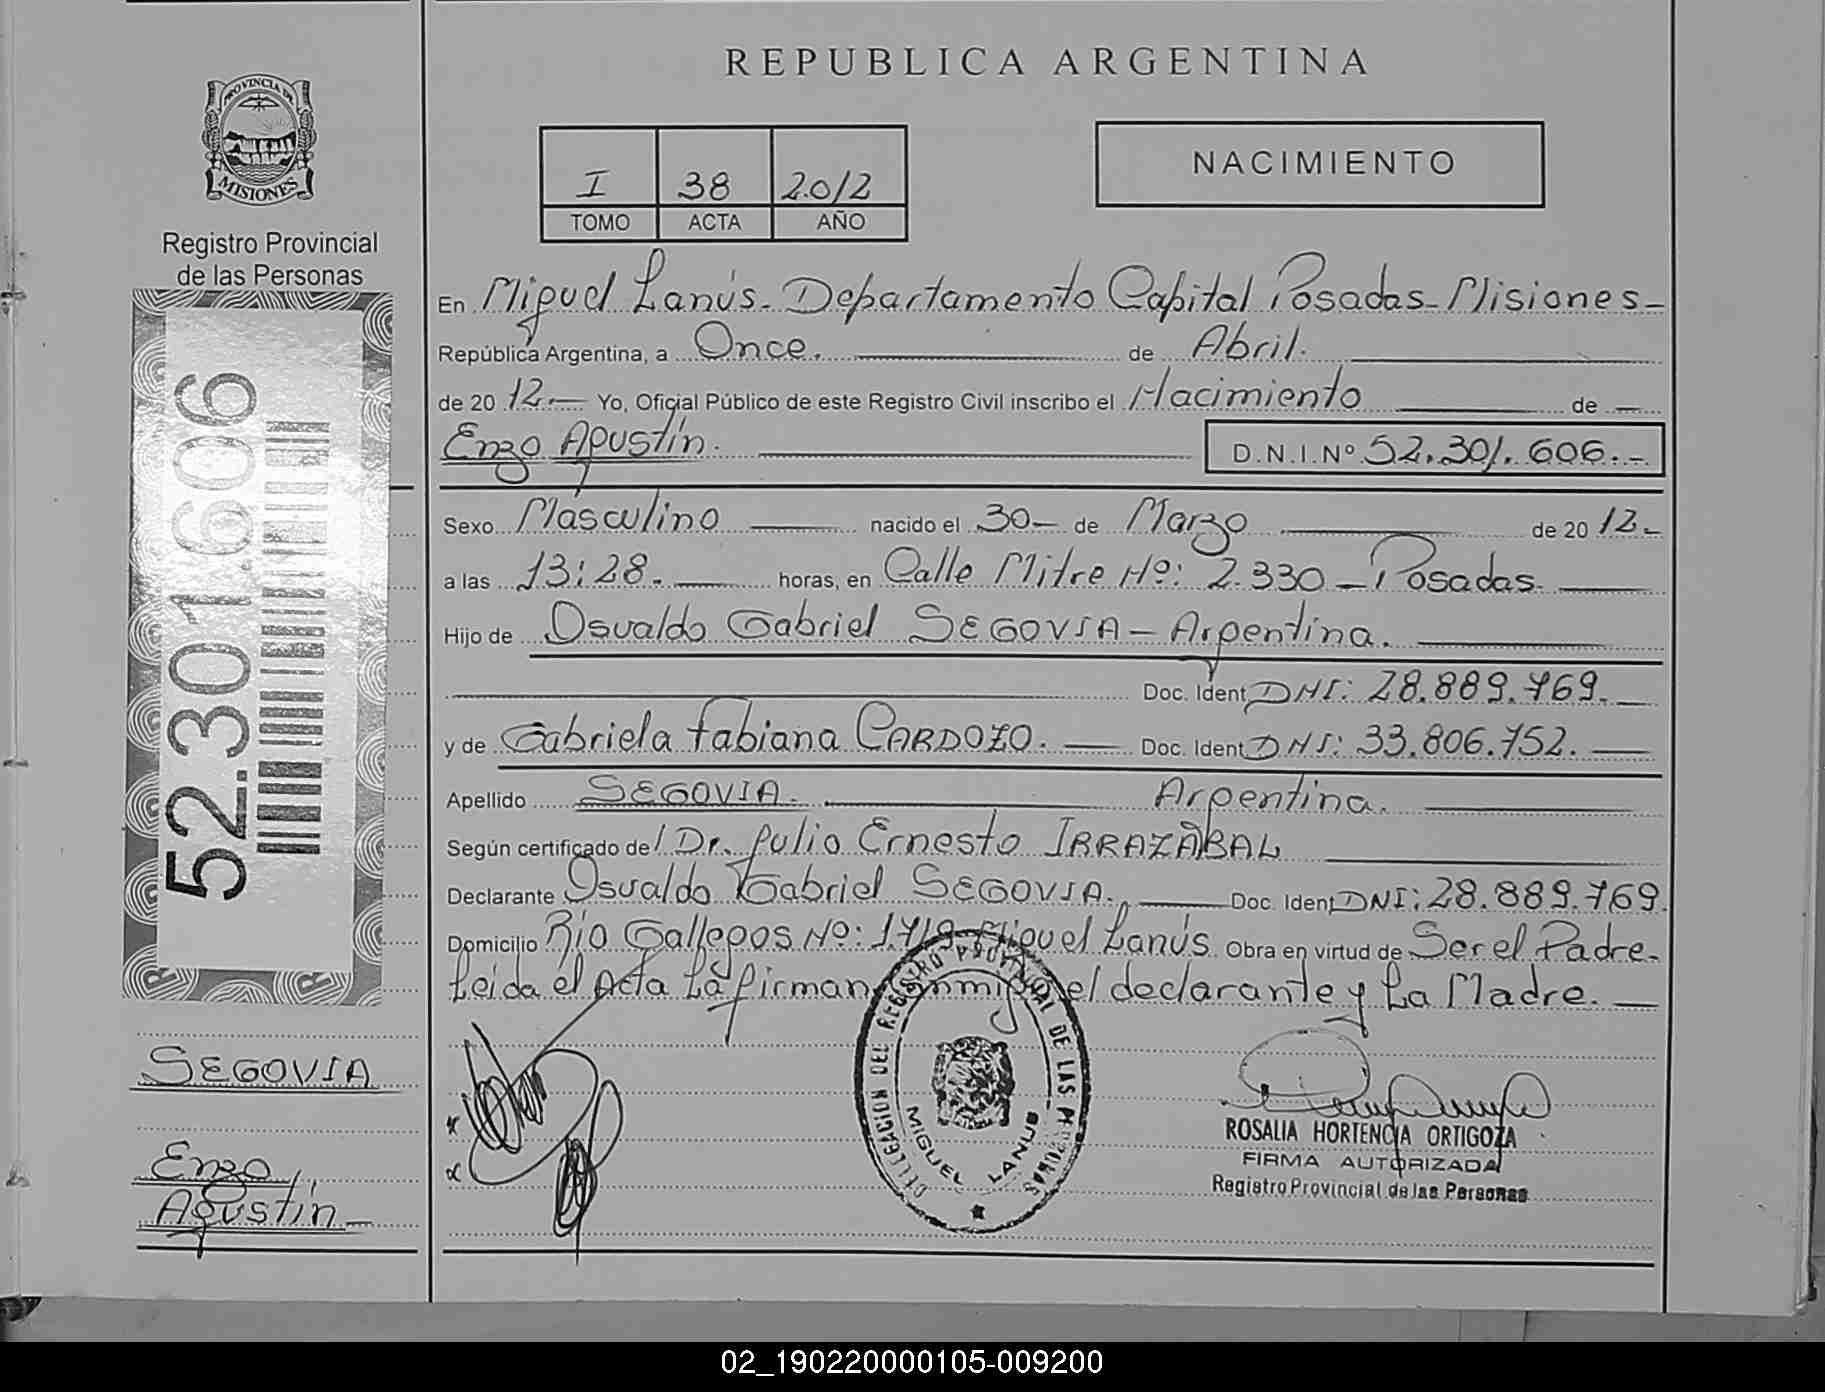 REPUBLICA ARGENTINA
PROVINCIA DE
MISIONES
Registro Provincial
de las Personas
52.301.606
I 38 2012
TOMO ACTA AÑO
NACIMIENTO
En Miguel Lanús - Departamento Capital Posadas - Misiones -
República Argentina, a Once. de Abril.
de 20 12.- Yo, Oficial Público de este Registro Civil inscribo el Nacimiento de
Enzo Agustín. D.N.I.Nº 52.301.606.-
Sexo Masculino nacido el 30 - de Marzo de 20 12.-
a las 13:28. horas, en Calle Mitre Nº: 2.330 - Posadas.
Hijo de Osvaldo Gabriel SEGOVIA - Argentina.
Doc. Ident DNI: 28.889.769.
y de Gabriela Fabiana CARDOZO. Doc. Ident DNI: 33.806.752.
Apellido SEGOVIA. Argentina.
Según certificado del Dr. Julio Ernesto IRRAZÁBAL
Declarante Osvaldo Gabriel SEGOVIA. Doc. Ident DNI: 28.889.769.
Domicilio Río Gallegos Nº: 1.719 Miguel Lanús. Obra en virtud de Ser el Padre.
Leida el Acta La firman conmigo el declarante y La Madre.
SEGOVIA
Enzo
Agustín
DELEGACION DEL REGISTRO PROVINCIAL DE LAS PERSONAS
MIGUEL LANUS
ROSALIA HORTENCIA ORTIGOZA
FIRMA AUTORIZADA
Registro Provincial de las Personas
02_190220000105-009200